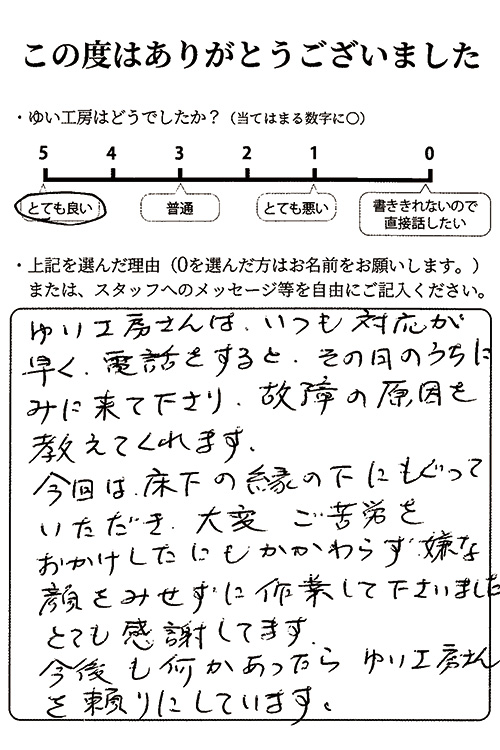 この度はありがとうございました
・ゆい工房はどうでしたか？（当てはまる数字に○）
5 4 3 2 1 0
とても良い 普通 とても悪い 書ききれないので
直接話したい
・上記を選んだ理由（0を選んだ方はお名前をお願いします。）
または、スタッフへのメッセージ等を自由にご記入ください。
ゆい工房さんは、いつも対応が
早く、電話をすると、その日のうちに
みに来て下さり、故障の原因を
教えてくれます。
今回は、床下の縁の下にもぐって
いただき、大変 ご苦労を
おかけしたにもかかわらず嫌な
顔をみせずに作業して下さいました
とても感謝してます。
今後も何かあったら ゆい工房さん
を頼りにしています。